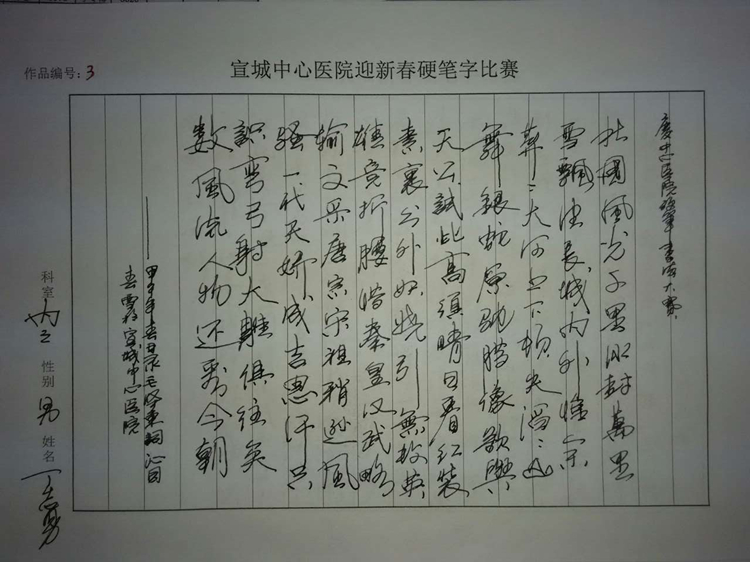 作品编号：3
宣城中心医院迎新春硬笔字比赛
庆中心医院硬笔书法大赛
北國风光千里冰封萬里
雪飘望长城内外惟余
莽〻大河上下顿失滔〻山
舞银蛇原驰腊像欲與
天公試比高須晴日看红装
素裹分外妖娆引無数英
雄竞折腰惜秦皇汉武略
输文采唐宗宋祖稍逊風
骚一代天娇成吉思汗只
識弯弓射大雕俱往矣
数風流人物还看今朝
甲午年春日录毛泽东词沁园
春雪於宣城中心医院
科室 内三 性别 男 姓名 丁志勇